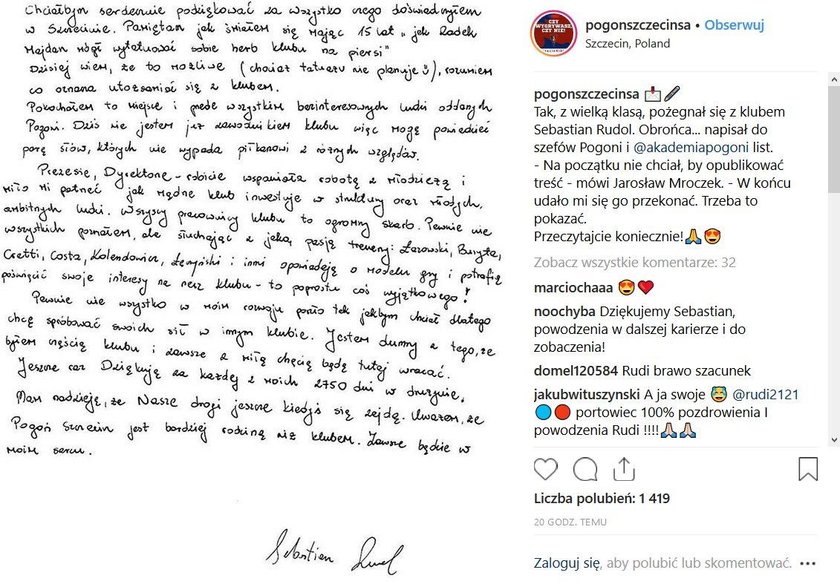 Chciałbym serdecznie podziękować za wszystko czego doświadczyłem
w Szczecinie. Pamiętam jak śmiałem się mając 15 lat "jak Radek
Majdan mógł wytatuować sobie herb klubu na piersi"
Dzisiaj wiem, że to możliwe (chociaż tatuażu nie planuję), rozumiem
co oznacza utożsamiać się z klubem.
Pokochałem to miejsce i przede wszystkim bezinteresownych ludzi oddanych
Pogoni. Dziś nie jestem już zawodnikiem klubu więc mogę powiedzieć
parę słów, których nie wypada piłkarzowi z różnych względów.
Prezesie, Dyrektorze - robicie wspaniałą robotę z młodzieżą i
miło mi patrzeć jak mądrze klub inwestuje w struktury oraz młodych,
ambitnych ludzi. Wszyscy pracownicy klubu to ogromny skarb. Pewnie nie
wszystkich poznałem, ale słuchając z jaką pasją trenerzy: Łazowski, Buryta,
Cretti, Costa, Kolendowicz, Łęczyński i inni opowiadają o modelu gry i potrafią
poświęcić swoje interesy na rzecz klubu - to poprostu coś wyjątkowego!
Pewnie nie wszystko w moim rozwoju poszło tak jakbym chciał dlatego
chcę spróbować swoich sił w innym klubie. Jestem dumny z tego, że
byłem częścią klubu i zawsze z miłą chęcią będę tutaj wracać.
Jeszcze raz Dziękuję za każdy z moich 2750 dni w drużynie.
Mam nadzieję, że Nasze drogi jeszcze kiedyś się zejdą. Uważam, że
Pogoń Szczecin jest bardziej rodziną niż klubem. Zawsze będzie w
moim sercu.
Sebastian Rudol
CZY
WYGRYWASZ,
CZY NIE!
pogonszczecinsa • Obserwuj
Szczecin, Poland
pogonszczecinsa 📩🖊
Tak, z wielką klasą, pożegnał się z klubem
Sebastian Rudol. Obrońca... napisał do
szefów Pogoni i @akademiapogoni list.
- Na początku nie chciał, by opublikować
treść - mówi Jarosław Mroczek. - W końcu
udało mi się go przekonać. Trzeba to
pokazać.
Przeczytajcie koniecznie!🙏😍
Zobacz wszystkie komentarze: 32
marciochaaa 😍❤
noochyba Dziękujemy Sebastian,
powodzenia w dalszej karierze i do
zobaczenia!
domel120584 Rudi brawo szacunek
jakubwituszynski A ja swoje 😇 @rudi2121
🔵🔴 portowiec 100% pozdrowienia I
powodzenia Rudi !!!!🙏🙏
Liczba polubień: 1 419
20 GODZ. TEMU
Zaloguj się, aby polubić lub skomentować. •••